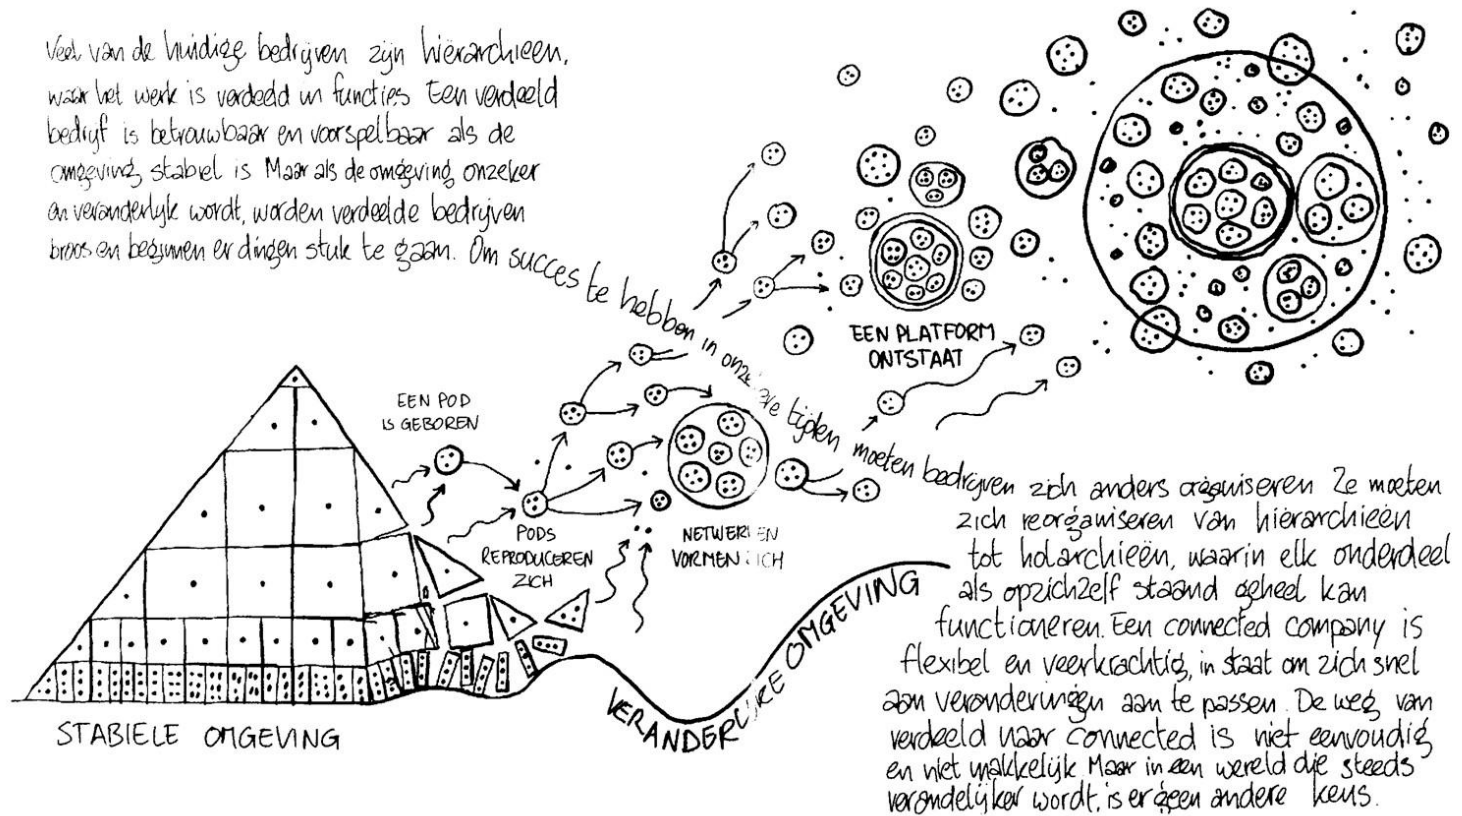 Veel van de huidige bedrijven zijn hiërarchieën,
waar het werk is verdeeld in functies Een verdeeld
bedrijf is betrouwbaar en voorspelbaar als de
omgeving stabiel is Maar als de omgeving onzeker
en veranderlijk wordt, worden verdeelde bedrijven
broos en beginnen er dingen stuk te gaan. Om succes te hebben in onzekere tijden moeten bedrijven zich anders organiseren Ze moeten
zich reorganiseren van hiërarchieën
tot holarchieën, waarin elk onderdeel
als opzichzelf staand geheel kan
functioneren. Een connected company is
flexibel en veerkrachtig, in staat om zich snel
aan veranderingen aan te passen. De weg van
verdeeld naar connected is niet eenvoudig
en niet makkelijk Maar in een wereld die steeds
verandelijker wordt, is er geen andere keus.
EEN POD
IS GEBOREN
PODS
REPRODUCEREN
ZICH
NETWERKEN
VORMEN ZICH
EEN PLATFORM
ONTSTAAT
STABIELE OMGEVING
VERANDERLIJKE OMGEVING